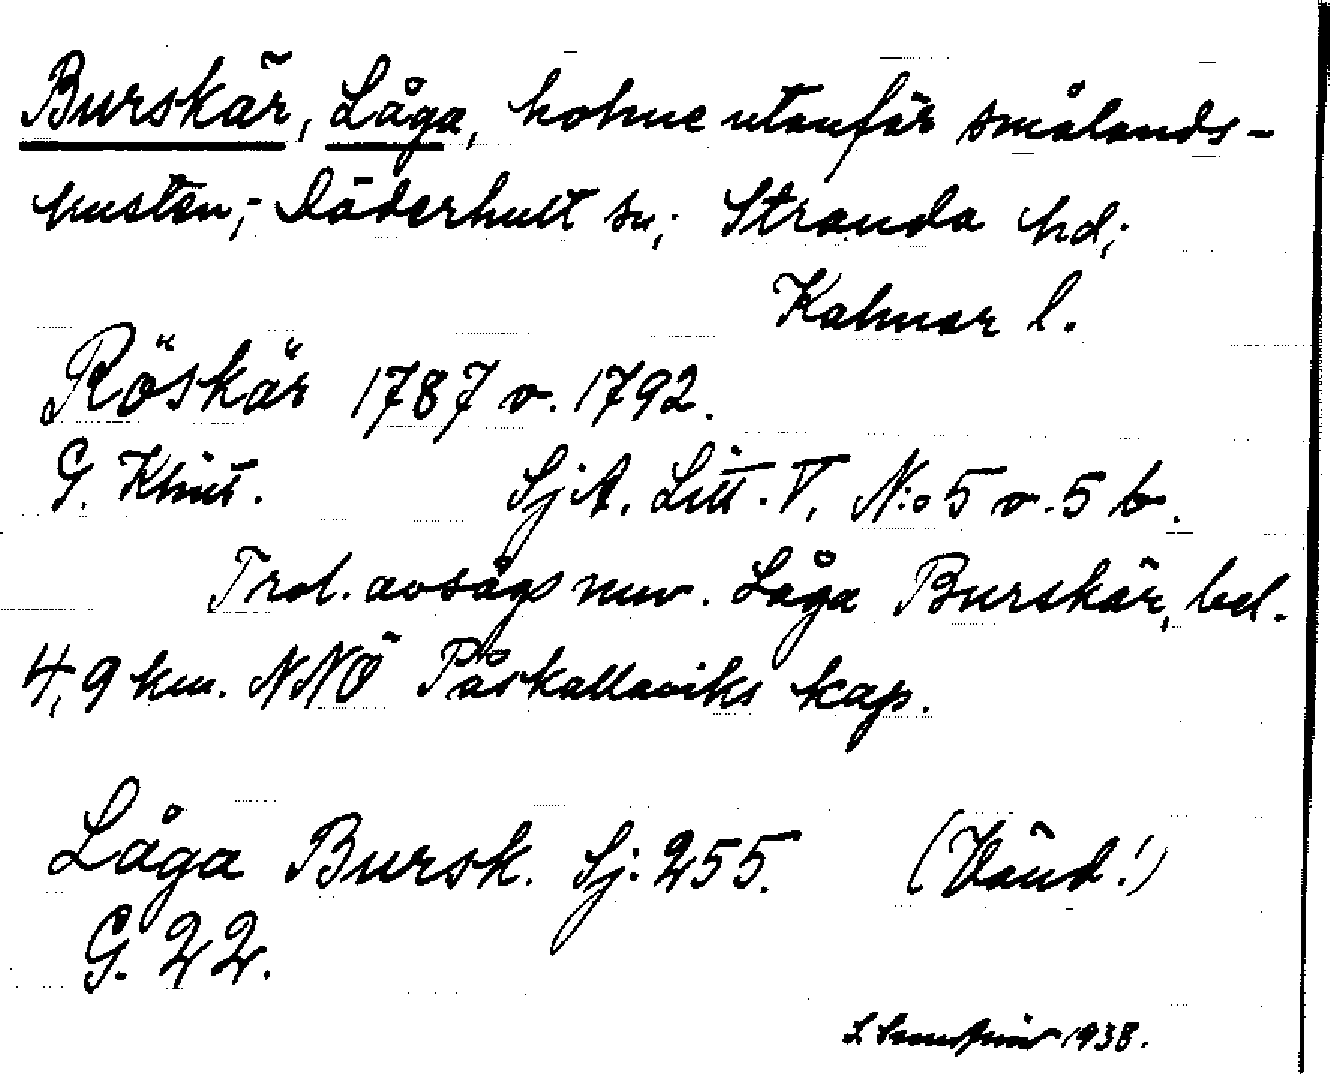 Burskär, Låga, holme utanför smålands-
kusten;- Döderhult sn; Stranda hd;
Kalmar l.
Röskär 1787 o. 1792.
G. Klint. SjA. Litt. T. N:o 5 o. 5 b.
Trol. avsågs nuv. Låga Burskär, bel.
4,9 km. NNÖ Påskallaviks kap.
Låga Bursk. Sj. 255. (Vänd!)
G. 22.
1938.